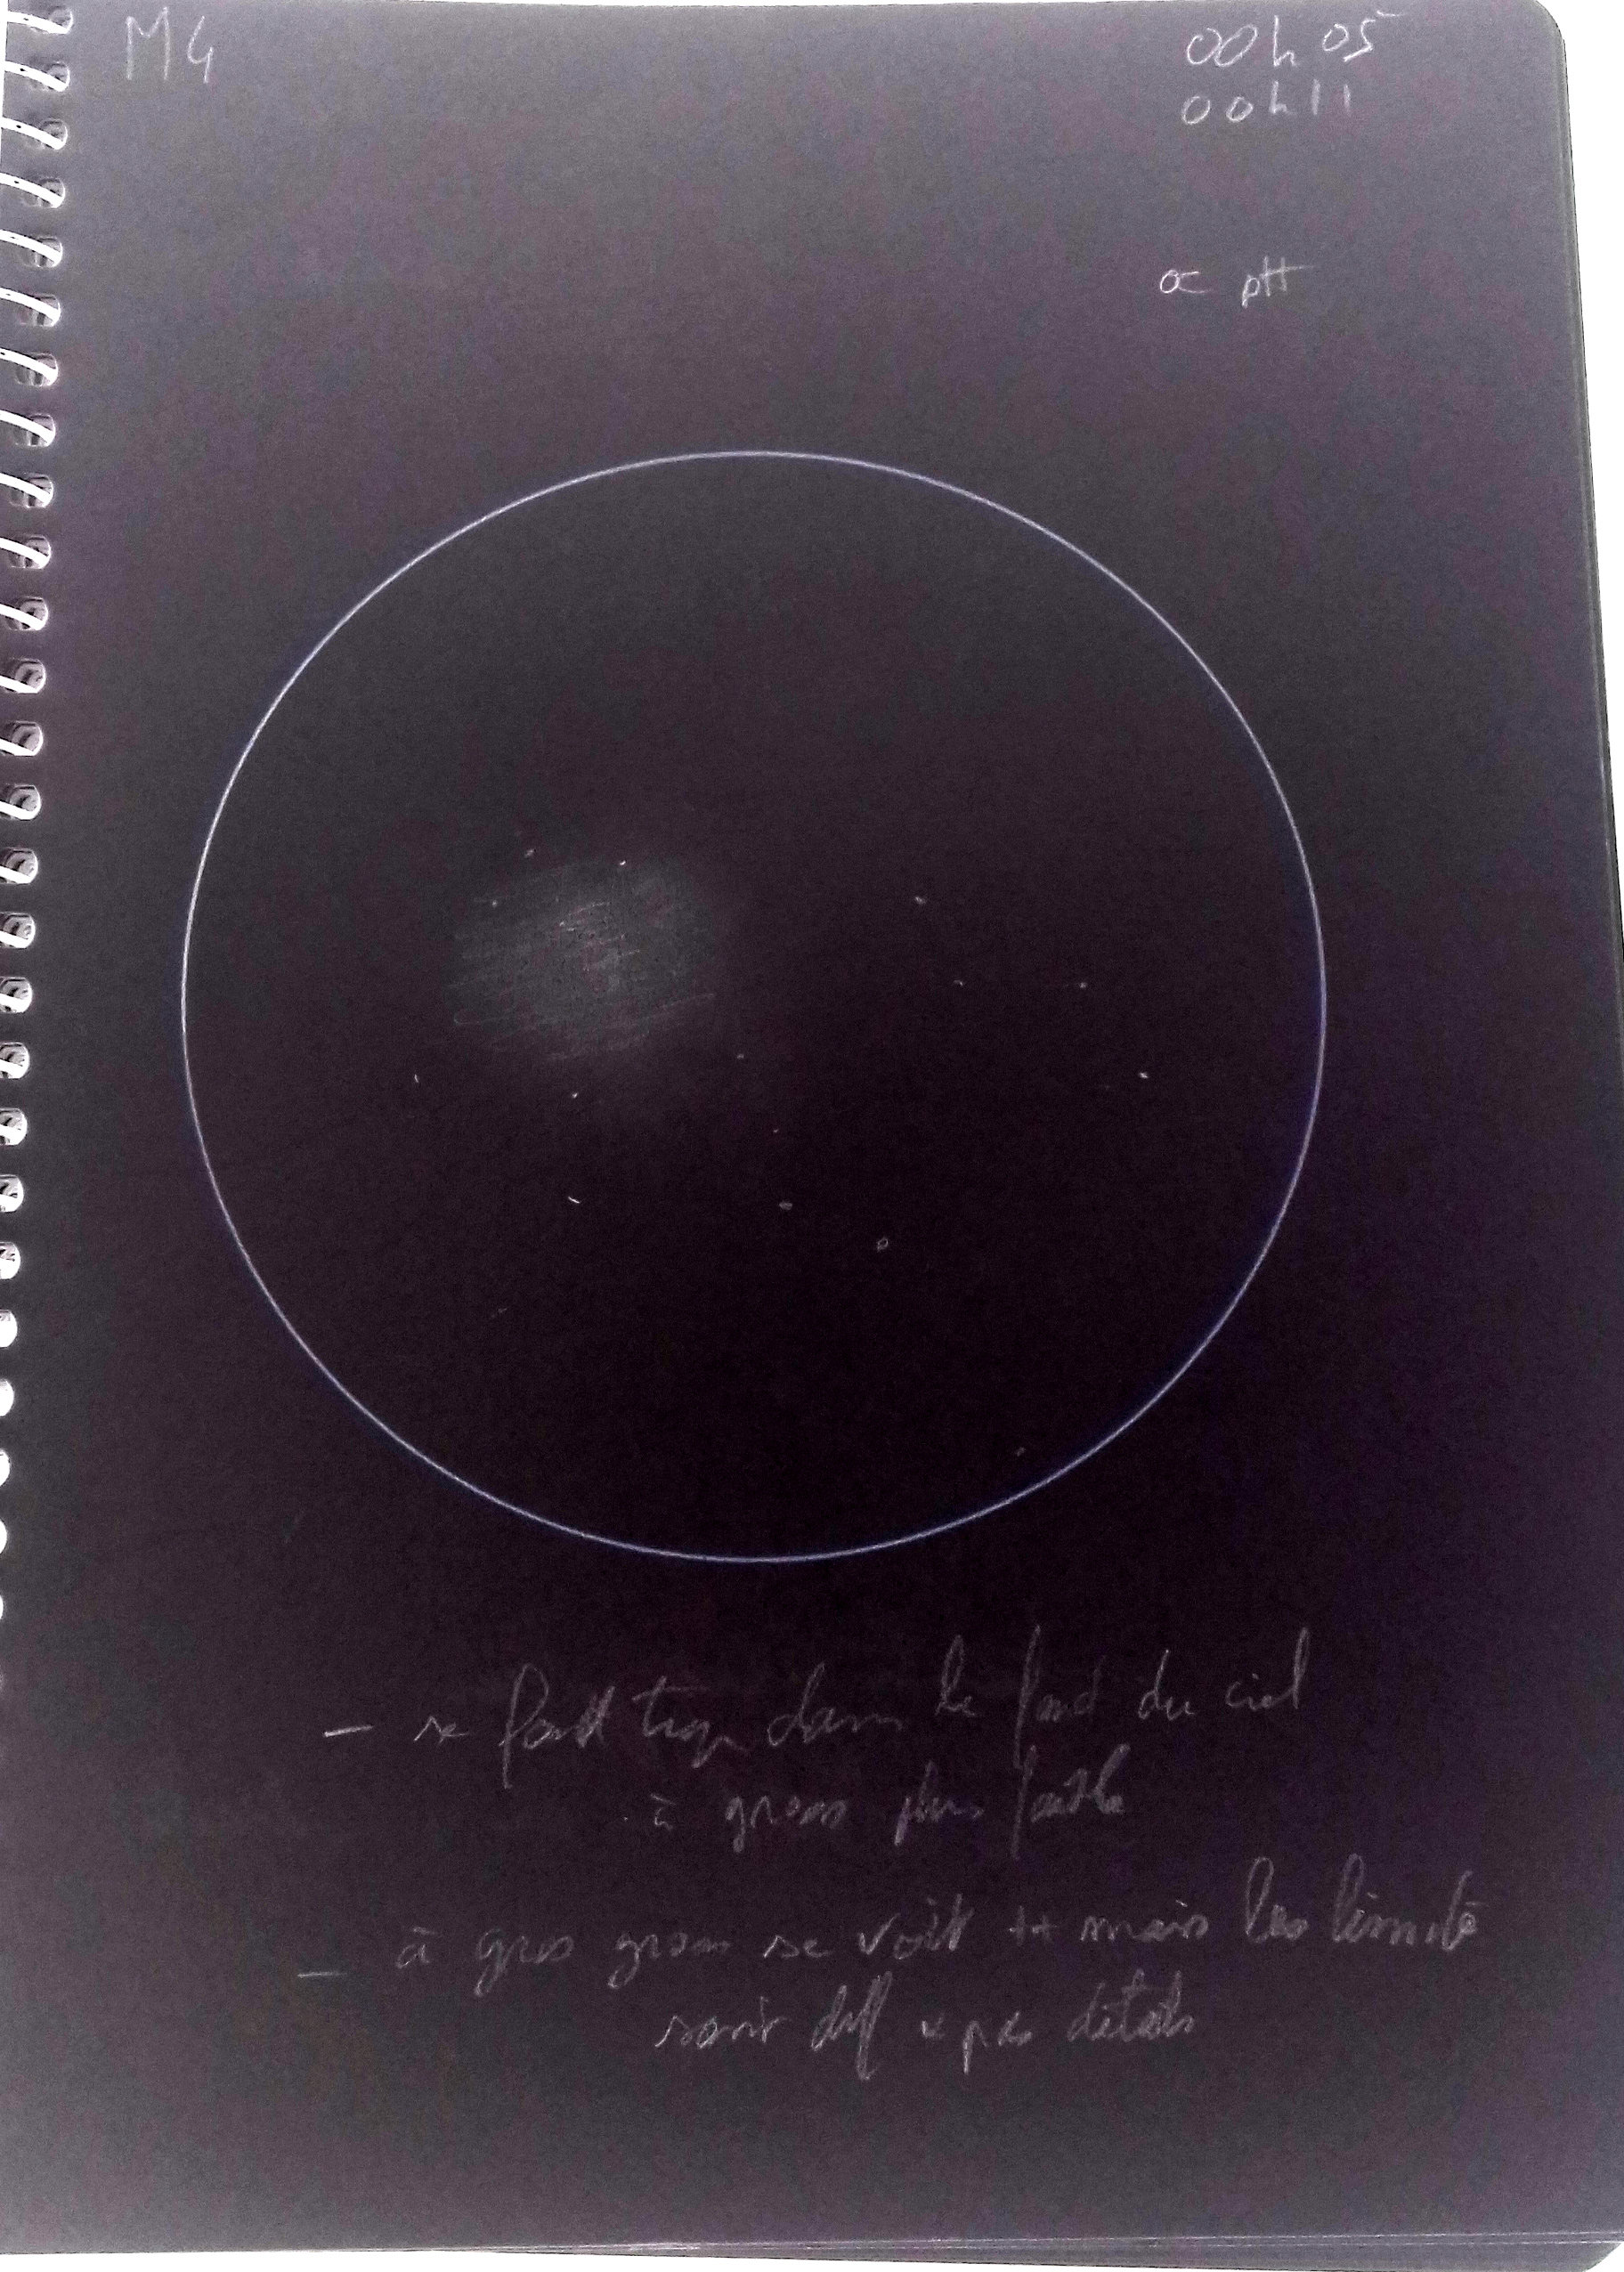 M4
00h 05
00h11
∝ pH
— se fond trop dans le fond du ciel
à gross plus faible
— à gros gross se voit ++ mais les limites
sont diff & pas détails